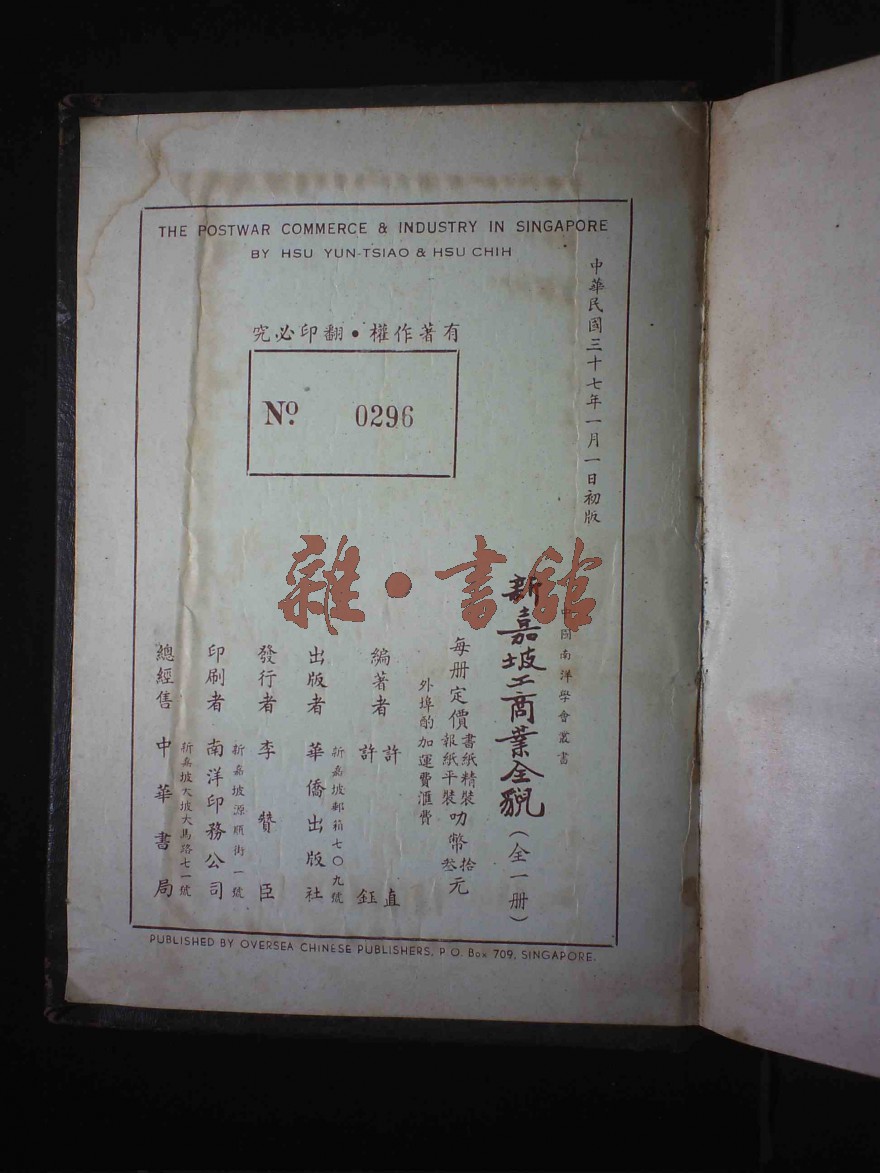 THE POSTWAR COMMERCE & INDUSTRY IN SINGAPORE
BY HSU YUN-TSIAO & HSU CHIH
中華民國三十七年一月一日初版
有著作權•翻印必究
No. 0296
雜•書館
中國南洋學會叢書
新嘉坡工商業全貌(全一册)
每册定價書紙精裝叻幣拾元
報紙平裝叁
外埠酌加運費滙費
編著者 許直
許鈺
出版者 華僑出版社
新嘉坡郵箱七〇九號
發行者 李贊臣
印刷者 南洋印務公司
新嘉坡源順街一號
總經售 中華書局
新嘉坡大坡大馬路七一號
PUBLISHED BY OVERSEA CHINESE PUBLISHERS, P.O. Box 709, SINGAPORE.